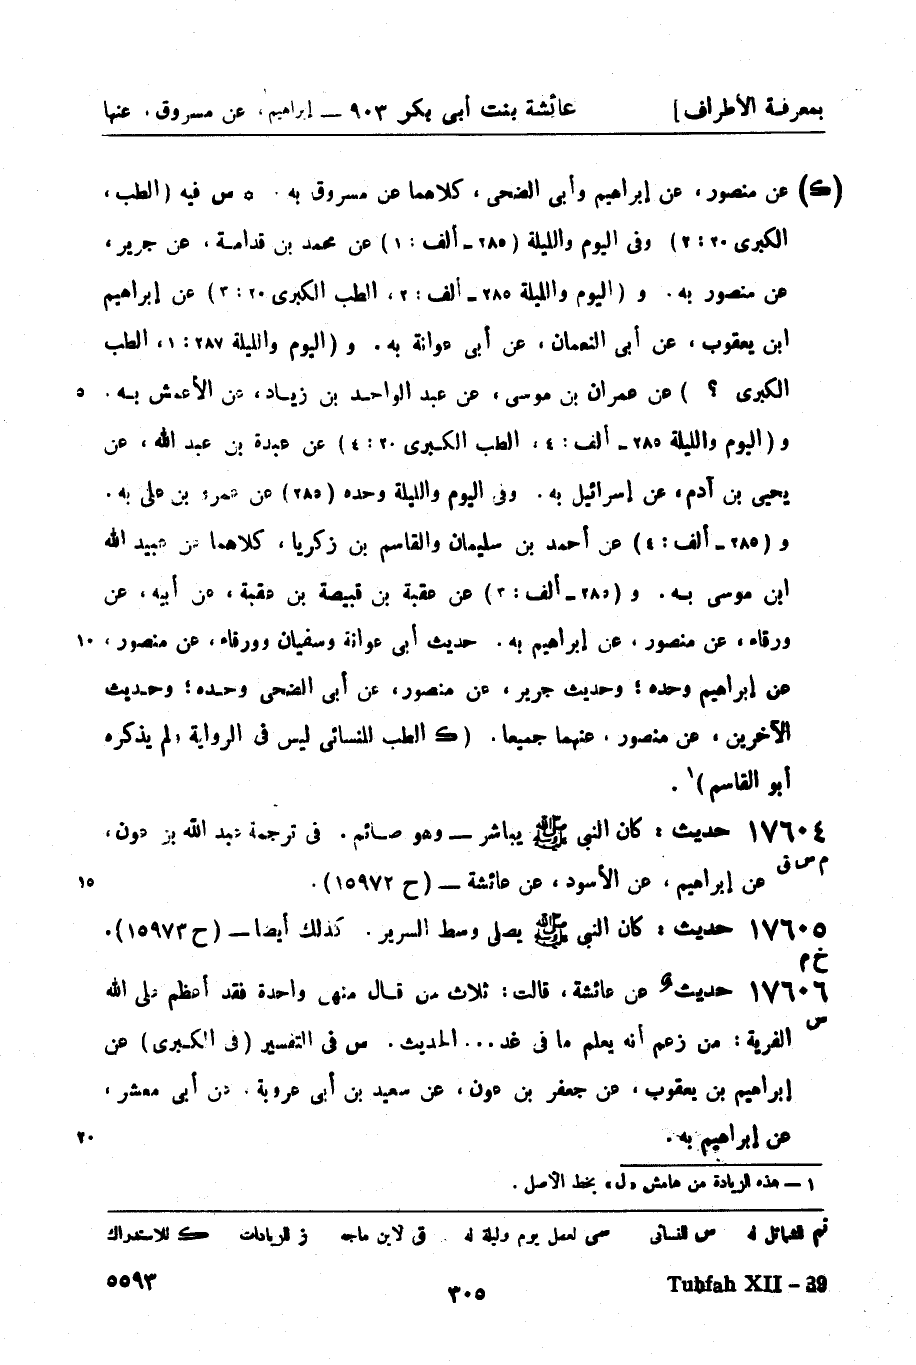 بمعرفة الأطراف] عائشة بنت أبى بكر ٩٠٣ — إبراهيم، عن مسروق، عنها
(ك) عن منصور، عن إبراهيم وأبى الضحى، كلاهما عن مسروق به. ٥ س فيه (الطب،
الكبرى ٢٠ : ٢) وفى اليوم والليلة (٢٨٥ - ألف : ١) عن محمد بن قدامة، عن جرير،
عن منصور به. و (اليوم والليلة ٢٨٥ - ألف : ٢، الطب الكبرى ٢٠ : ٣) عن إبراهيم
ابن يعقوب، عن أبى النعمان، عن أبى عوانة به. و (اليوم والليلة ٢٨٧ : ١، الطب
الكبرى ؟ ) عن عمران بن موسى، عن عبد الواحد بن زيـاد، عن الأعمش بـه. ٥
و (اليوم والليلة ٢٨٥ - ألف : ٤، الطب الكبرى ٢٠ : ٤) عن عبدة بن عبد الله، عن
يحيى بن آدم، عن إسرائيل به. وفى اليوم والليلة وحده (٢٨٥) عن عمرو بن على به.
و (٢٨٥ - ألف : ٤) عن أحمد بن سليمان والقاسم بن زكريا، كلاهما عن عبيد الله
ابن موسى بـه. و (٢٨٥ - ألف : ٣) عن عقبة بن قبيصة بن عقبة، عن أبيه، عن
ورقاء، عن منصور، عن إبراهيم به. حديث أبى عوانة وسفيان وورقاء، عن منصور، ١٠
عن إبراهيم وحده؛ وحديث جرير، عن منصور، عن أبى الضحى وحـده؛ وحـديث
الآخرين، عن منصور، عنهما جميعا. (ك الطب للنسائى ليس فى الرواية ولم يذكره
أبو القاسم)١.
١٧٦٠٤ حديث : كان النبى ﷺ يباشر — وهو صـائم. فى ترجمة عبد الله بن عون،
م س ق عن إبراهيم، عن الأسود، عن عائشة — (ح ١٥٩٧٢). ١٥
١٧٦٠٥ حديث : كان النبى ﷺ يصلى وسط السرير. كذلك أيضا — (ح ١٥٩٧٣).
خ م
١٧٦٠٦ حديث عن عائشة، قالت: ثلاث من قـال منهن واحدة فقد أعظم على الله
س الفرية : من زعم أنه يعلم ما فى غد... الحديث. س فى التفسير (فى الكـبرى) عن
إبراهيم بن يعقوب، عن جعفر بن عون، عن سعيد بن أبى عروبة. عن أبى معشر،
عن إبراهيم به. ٢٠
١ — هذه الزيادة من هامش «ل» بخط الأصل.
تم للشمائل له س للنسائى سى لعمل يوم وليلة له ق لابن ماجه ز للزيادات ك للاستدراك
٥٥٩٣
٣٠٥
Tuhfah XII – 39